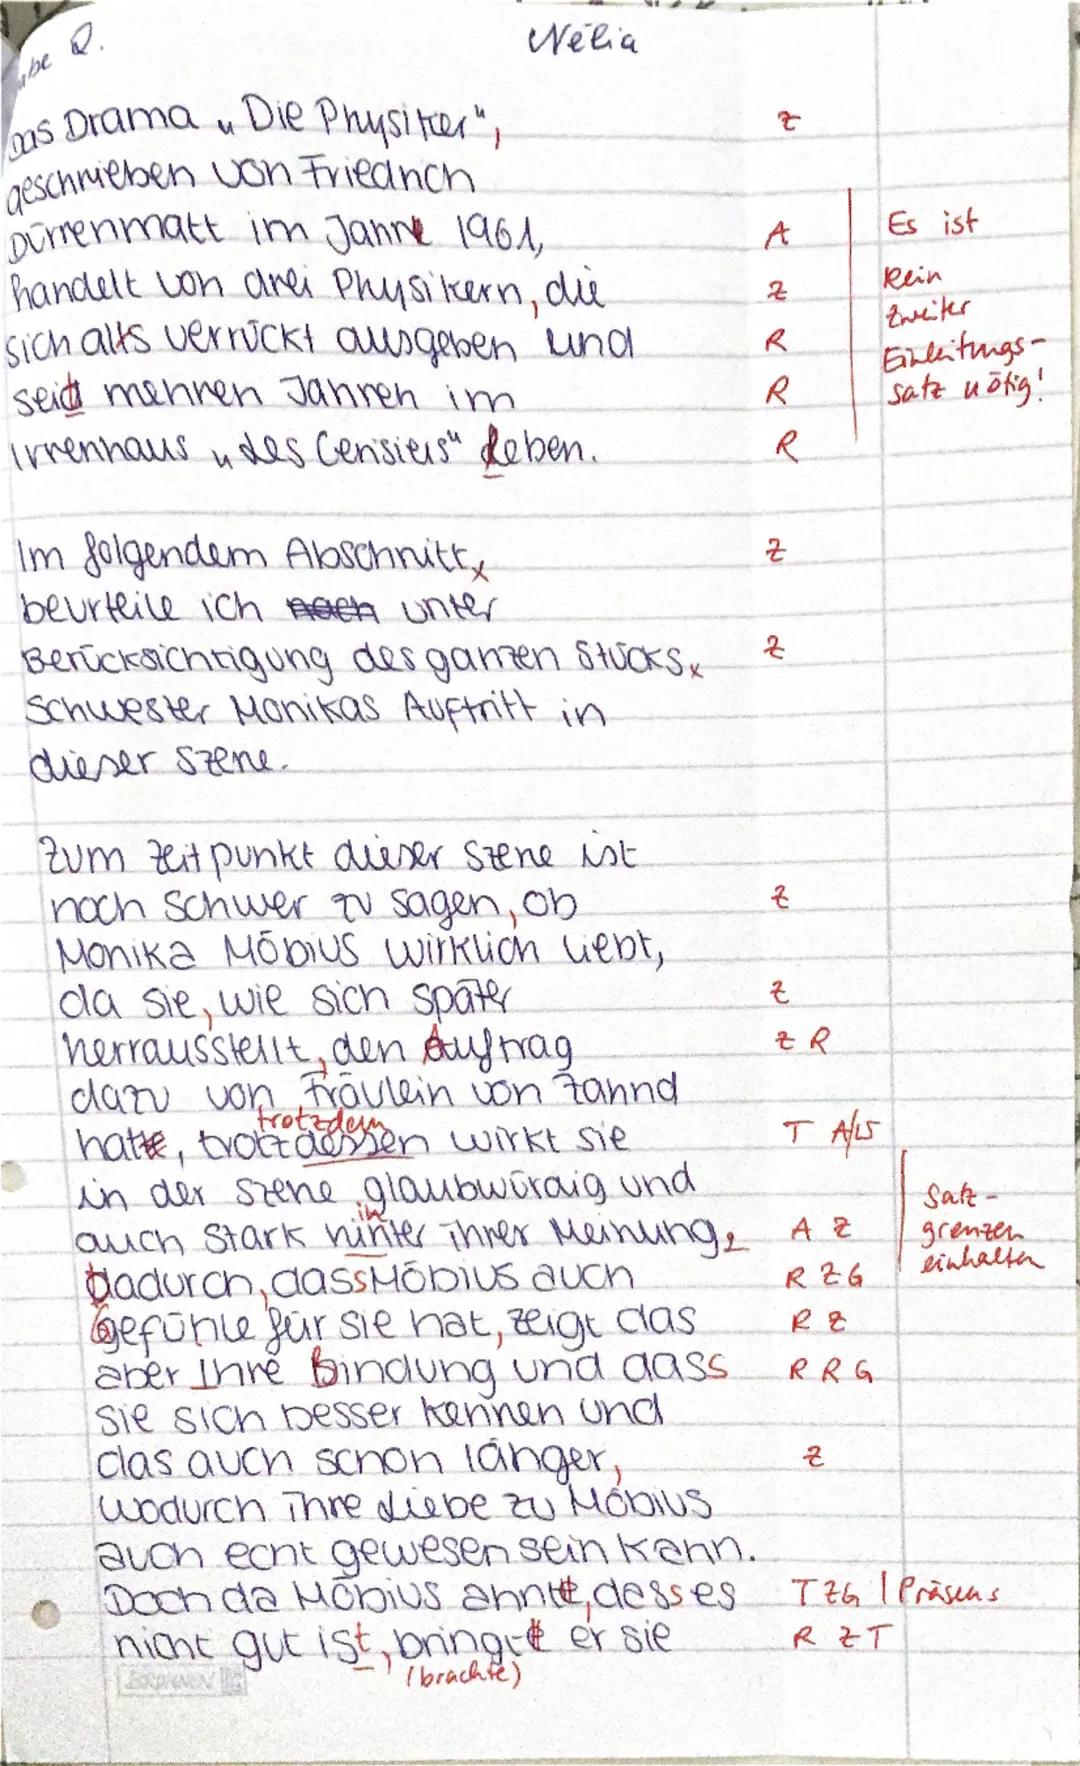 Q.
Nélia
Das Drama „Die Physiker", z
geschrieben von Friedrich
Dürrenmatt im Jahre 1961, A Es ist
handelt von drei Physikern, die z kein
zweiter
sich alts verrückt ausgeben und R Einleitungs-
seit mehren Jahren im R satz nötig!
Irrenhaus „des Cerisiers" leben. R
Im folgendem Abschnitt z
beurteile ich nach unter
Berücksichtigung des ganzen Stücks z
Schwester Monikas Auftritt in
dieser Szene.
Zum Zeitpunkt dieser Szene ist
noch schwer zu sagen, ob z
Monika Möbius wirklich liebt,
da sie, wie sich später z
herrausstellt, den Auftrag z R
dazu von Fräulein von Zahnd
trotzdem
hat, trotzdessen wirkt sie T A/LS
in der Szene glaubwürdig und Satz-
in
auch stark hinter ihrer Meinung, A z grenzen
dadurch, dass Möbius auch R Z G einhalten
Gefühle für sie hat, zeigt das R z
aber Ihre Bindung und dass R R G
sie sich besser kennen und
das auch schon länger, z
wodurch ihre Liebe zu Möbius
auch echt gewesen sein kann.
Doch da Möbius ahnt, dass es T Z G | Präsens
nicht gut ist, bringt er sie R Z T
(brachte)
BRUNNEN